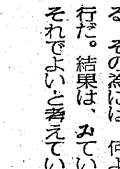 る。その為には、何よ
行だ。結果は、みてい
それでよいと考えてい